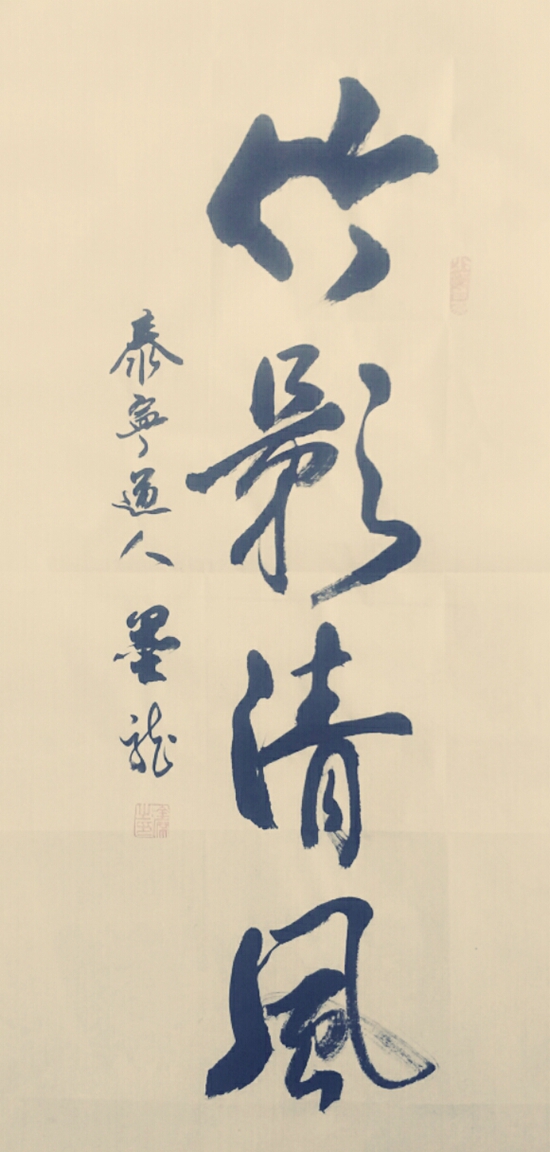 竹影清風
泰寧道人 墨龍